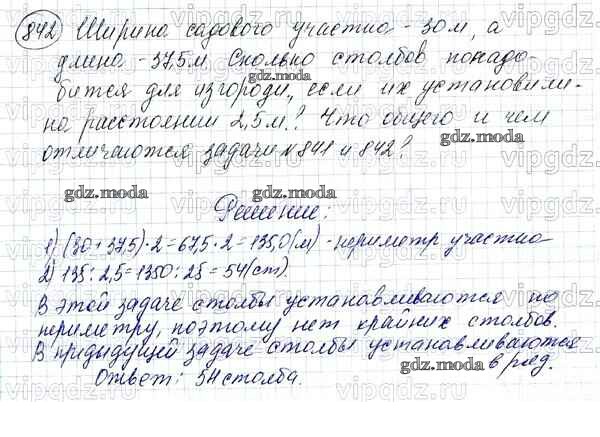 842 Ширина садового участка - 30 м, а
длина - 37,5 м. Сколько столбов понадо-
бится для изгороди, если их установили-
на расстоянии 2,5 м? Что общего и чем
отличаются задачи №841 и 842?
Решение:
1) (30+37,5)·2=67,5·2=135,0(м) - периметр участка
2) 135:2,5=1350:25=54(ст).
В этой задаче столбы устанавливаются по
периметру, поэтому нет крайних столбов.
В предидущей задаче столбы устанавливаются
в ряд.
Ответ: 54 столба.
gdz.moda
gdz.moda
gdz.moda
gdz.moda
gdz.moda
gdz.moda
gdz.moda
vipgdz.ru